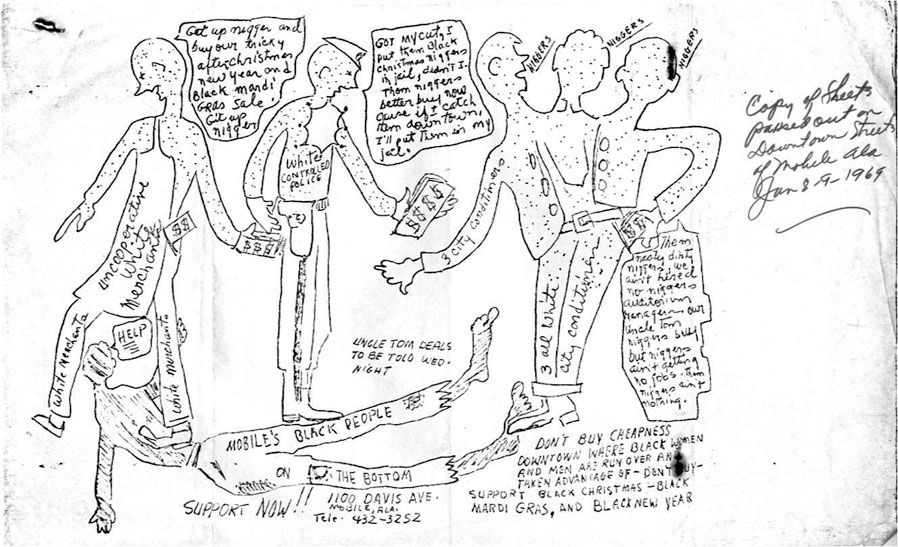 Get up nigger and
buy our tricky
after christmas
new year and
Black mardi
GRAS Sale!
Git up
nigger
GOT MY CUT, I
put them Black
Christmas niggers
in jail, didn't I.
Them niggers
better buy now
cause if I catch
them downtown,
I'll put them in my
jail.
NIGGERS
NIGGERS
NIGGERS
Copy of Sheets
passed out on
Downtown Streets
of Mobile Ala
Jan 8-9-1969
White
CONTROLLED
POLICE
$$$$
$$
$$$
uncooperative
White
Merchants
3 city conditiners
3 all White
city conditiners
$$
Them
nasty dirty
niggers, we
ain't hired
no niggers
auditorium
managers. our
uncle tom
niggers
but niggers
ain't getting
no jobs. them
niggers ain't
nothing.
HELP
White Merchants
White Merchants
UNCLE TOM DEALS
TO BE TOLD WED.
NIGHT
MOBILE'S BLACK PEOPLE
ON THE BOTTOM
SUPPORT NOW!!
1100 DAVIS AVE.
MOBILE, ALA.
Tele. 432-3252
DON'T BUY CHEAPNESS
DOWNTOWN WHERE BLACK WOMEN
AND MEN ARE RUN OVER AND
TAKEN ADVANTAGE OF - DON'T BUY -
SUPPORT BLACK CHRISTMAS - BLACK
MARDI GRAS, AND BLACK NEW YEAR